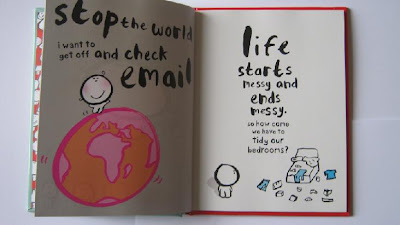 stop the world
i want to
get off and check
email
life
starts
messy and
ends
messy.
so how come
we have to
tidy our
bedrooms?